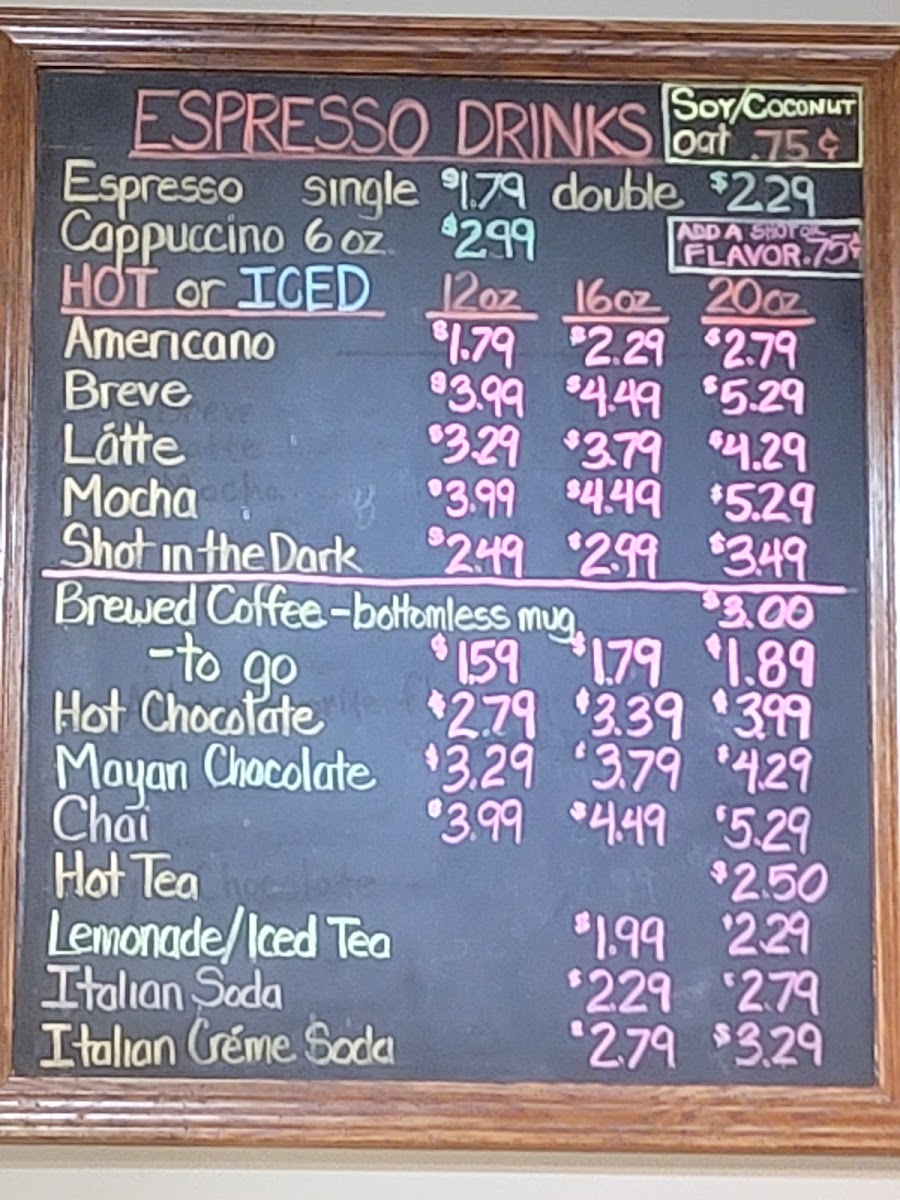 ESPRESSO DRINKS
SOY/COCONUT
oat .75¢
Espresso single $1.79 double $2.29
Cappuccino 6 oz. $2.99
ADD A SHOT OR
FLAVOR .75¢
HOT or ICED 12oz 16oz 20oz
Americano $1.79 $2.29 $2.79
Breve $3.99 $4.49 $5.29
Látte $3.29 $3.79 $4.29
Mocha $3.99 $4.49 $5.29
Shot in the Dark $2.49 $2.99 $3.49
Brewed Coffee - bottomless mug $3.00
- to go $1.59 $1.79 $1.89
Hot Chocolate $2.79 $3.39 $3.99
Mayan Chocolate $3.29 $3.79 $4.29
Chai $3.99 $4.49 $5.29
Hot Tea $2.50
Lemonade/Iced Tea $1.99 $2.29
Italian Soda $2.29 $2.79
Italian Créme Soda $2.79 $3.29